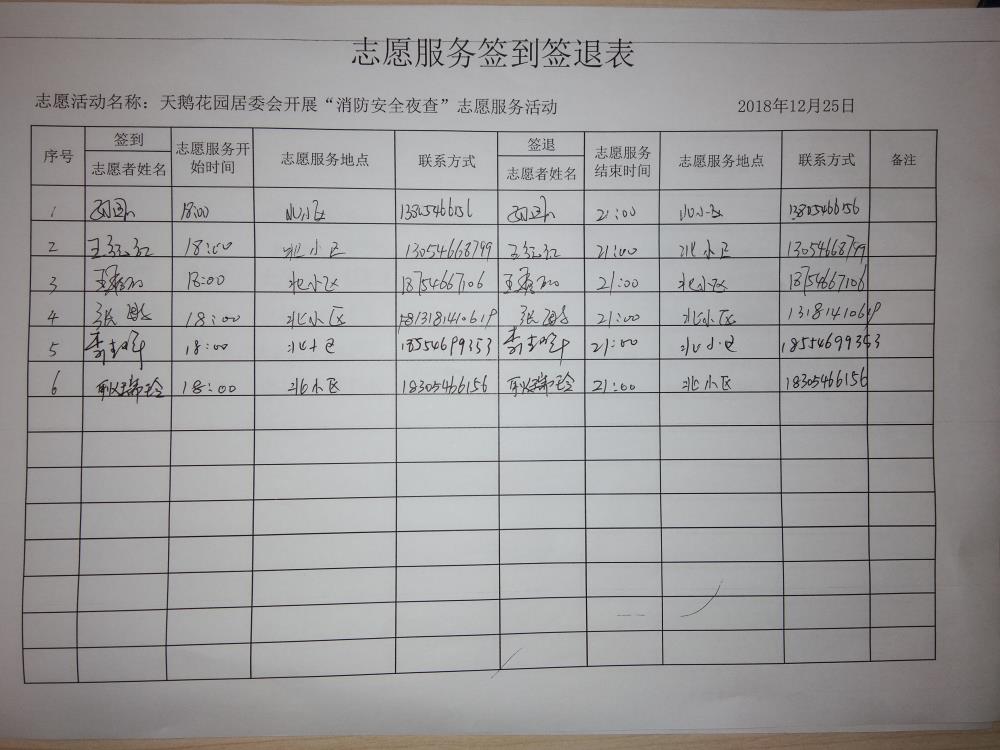 志愿服务签到签退表
志愿活动名称：天鹅花园居委会开展“消防安全夜查”志愿服务活动 2018年12月25日
序号 签到 志愿者姓名 志愿服务开始时间 志愿服务地点 联系方式 签退 志愿者姓名 志愿服务结束时间 志愿服务地点 联系方式 备注
1 18:00 北小区 13805466156 21:00 北小区 13805466156
2 王红红 18:00 北小区 13054668799 王红红 21:00 北小区 13054668799
3 18:00 北小区 18754667106 21:00 北小区 18754667106
4 张 18:00 北小区 13181410619 张 21:00 北小区 13181410619
5 李 18:00 北小区 18554699353 李 21:00 北小区 18554699353
6 耿瑞玲 18:00 北小区 18305466156 耿瑞玲 21:00 北小区 18305466156